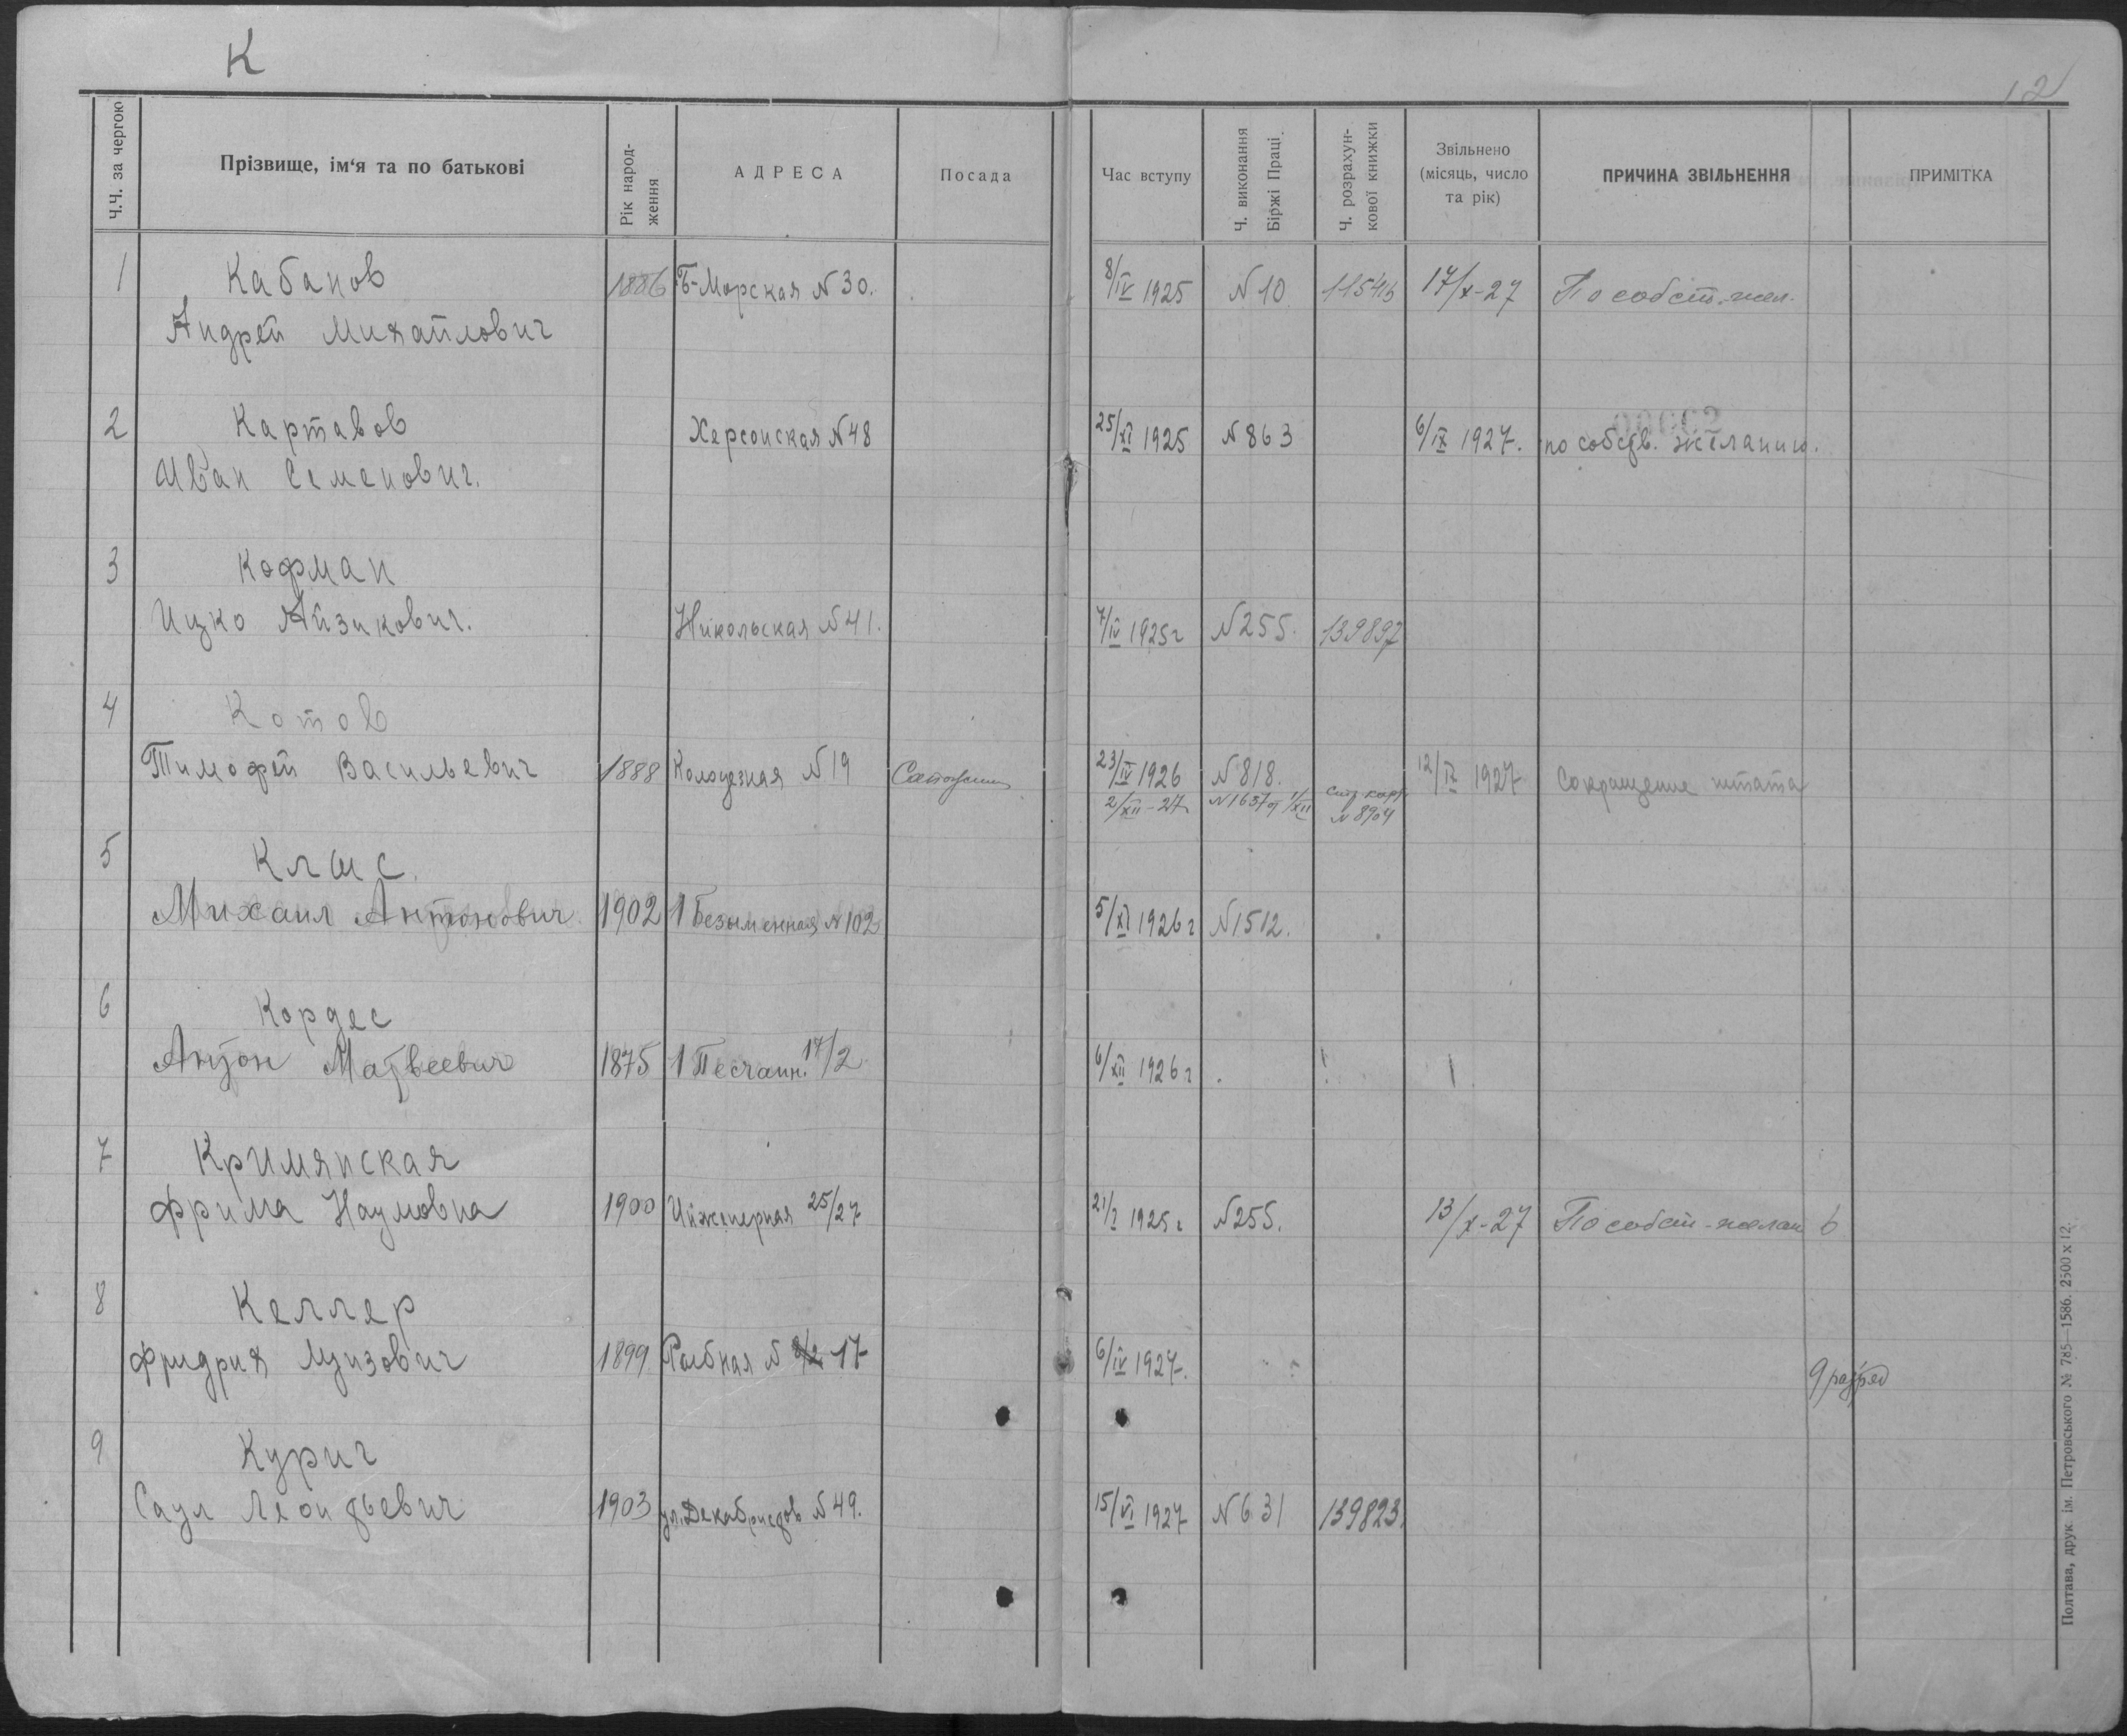 К
12
Ч.Ч. за чергою
Прізвище, ім'я та по батькові
Рік народ-
ження
АДРЕСА
Посада
Час вступу
Ч. виконання
Біржі Праці
Ч. розрахун-
кової книжки
Звільнено
(місяць, число
та рік)
ПРИЧИНА ЗВІЛЬНЕННЯ
ПРИМІТКА
1 Кабанов
Андрей Михайлович 1886 Б-Морская N 30. 8/IV 1925 N 10 17/X-27 По собст. жел.
00002
2 Картавов
Иван Семенович. Херсонская N 48 25/XI 1925 N 863 6/IX 1927. по собств. желанию.
3 Кофман
Ицко Айзикович. Никольская N 41. 7/IV 1925 г N 255. 139897
4 Котов
Тимофей Васильевич 1888 Колодезная N 19 23/IV 1926 N 818. 12/IX 1927 Сокращение штата
2/XII-27 N 1637 от 1/XII N 8904
5 Клшс.
Михаил Антонович 1902 1 Безыменная N 102 5/XI 1926 г N 1512.
6 Кордес
Антон Матвеевич 1875 1 Песчанн. 17/2 6/XII 1926 г
7 Кримянская
Фрима Наумовна 1900 Инженерная 25/27 21/I 1925 г N 255. 13/X-27 По собст-желан 6
8 Келлер
Фридрих Луизович 1899 Рыбная N 17 6/IV 1927. 9 разряд
9 Курич
Саул Леонтьевич 1903 ул. Декабристов N 49. 15/VI 1927 N 631 139823.
Полтава, друк ім. Петровського № 785—1586. 2500 х 12.